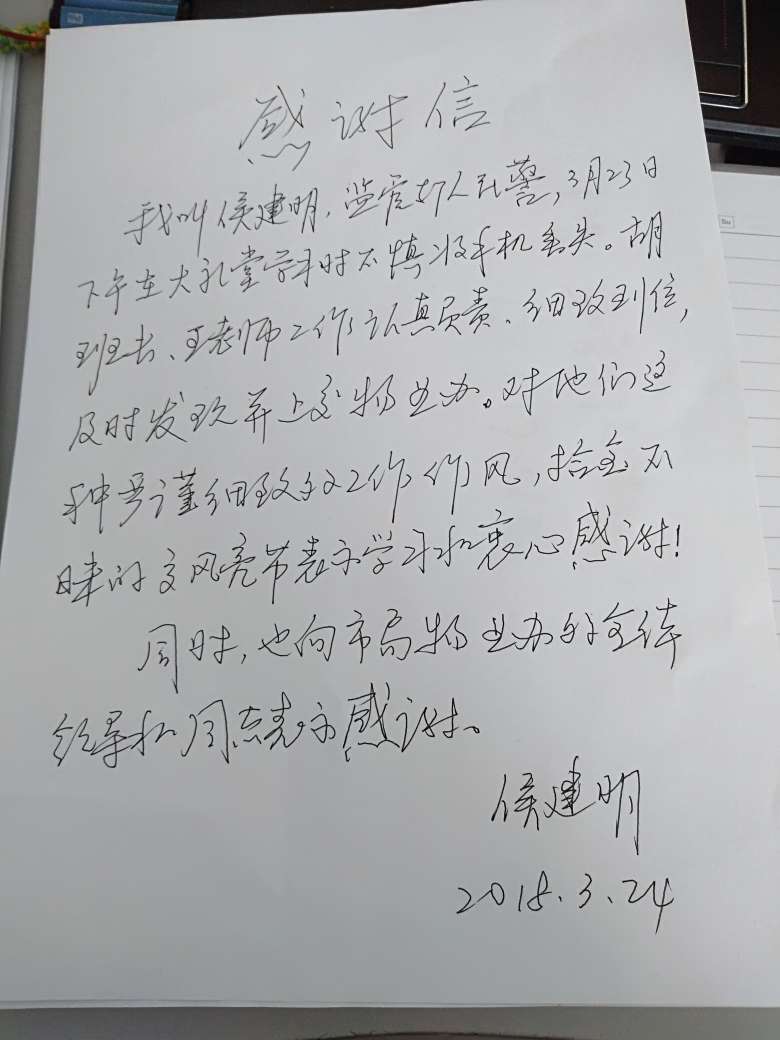 感谢信
我叫侯建明,监管支队民警,3月23日
下午在大礼堂学习时不慎将手机丢失。胡
班长、王老师工作认真负责、细致到位,
及时发现并上交物业办。对他们这
种严谨细致的工作作风,拾金不
昧的高风亮节表示学习和衷心感谢!
同时,也向市局物业办的全体
领导和同志表示感谢。
侯建明
2018.3.24